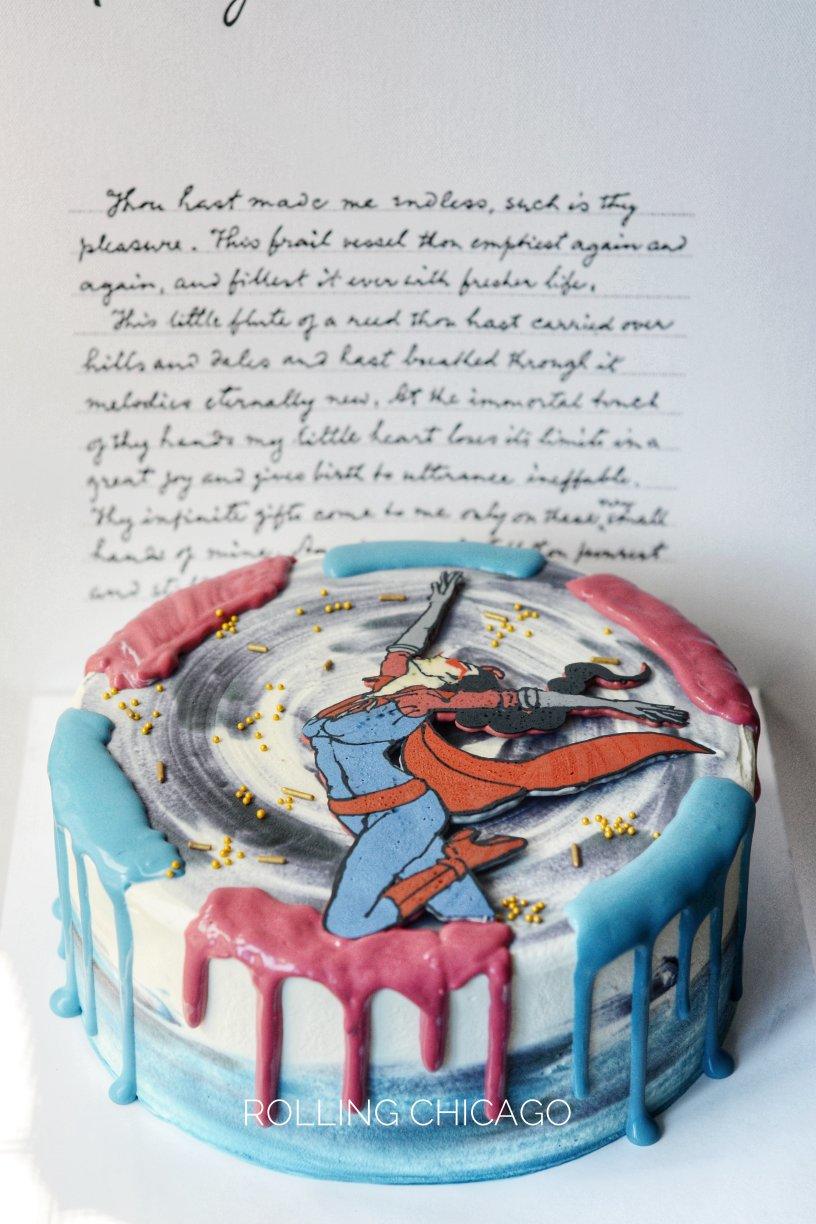 Thou hast made me endless, such is thy
pleasure. This frail vessel thou emptiest again and
again, and fillest it ever with fresher life.
This little flute of a reed thou hast carried over
hills and dales and hast breathed through it
melodies eternally new. At the immortal touch
of thy hands my little heart loses its limits in a
great joy and gives birth to utterance ineffable.
Thy infinite gifts come to me only on these very small
hands of mine.
and
ROLLING CHICAGO